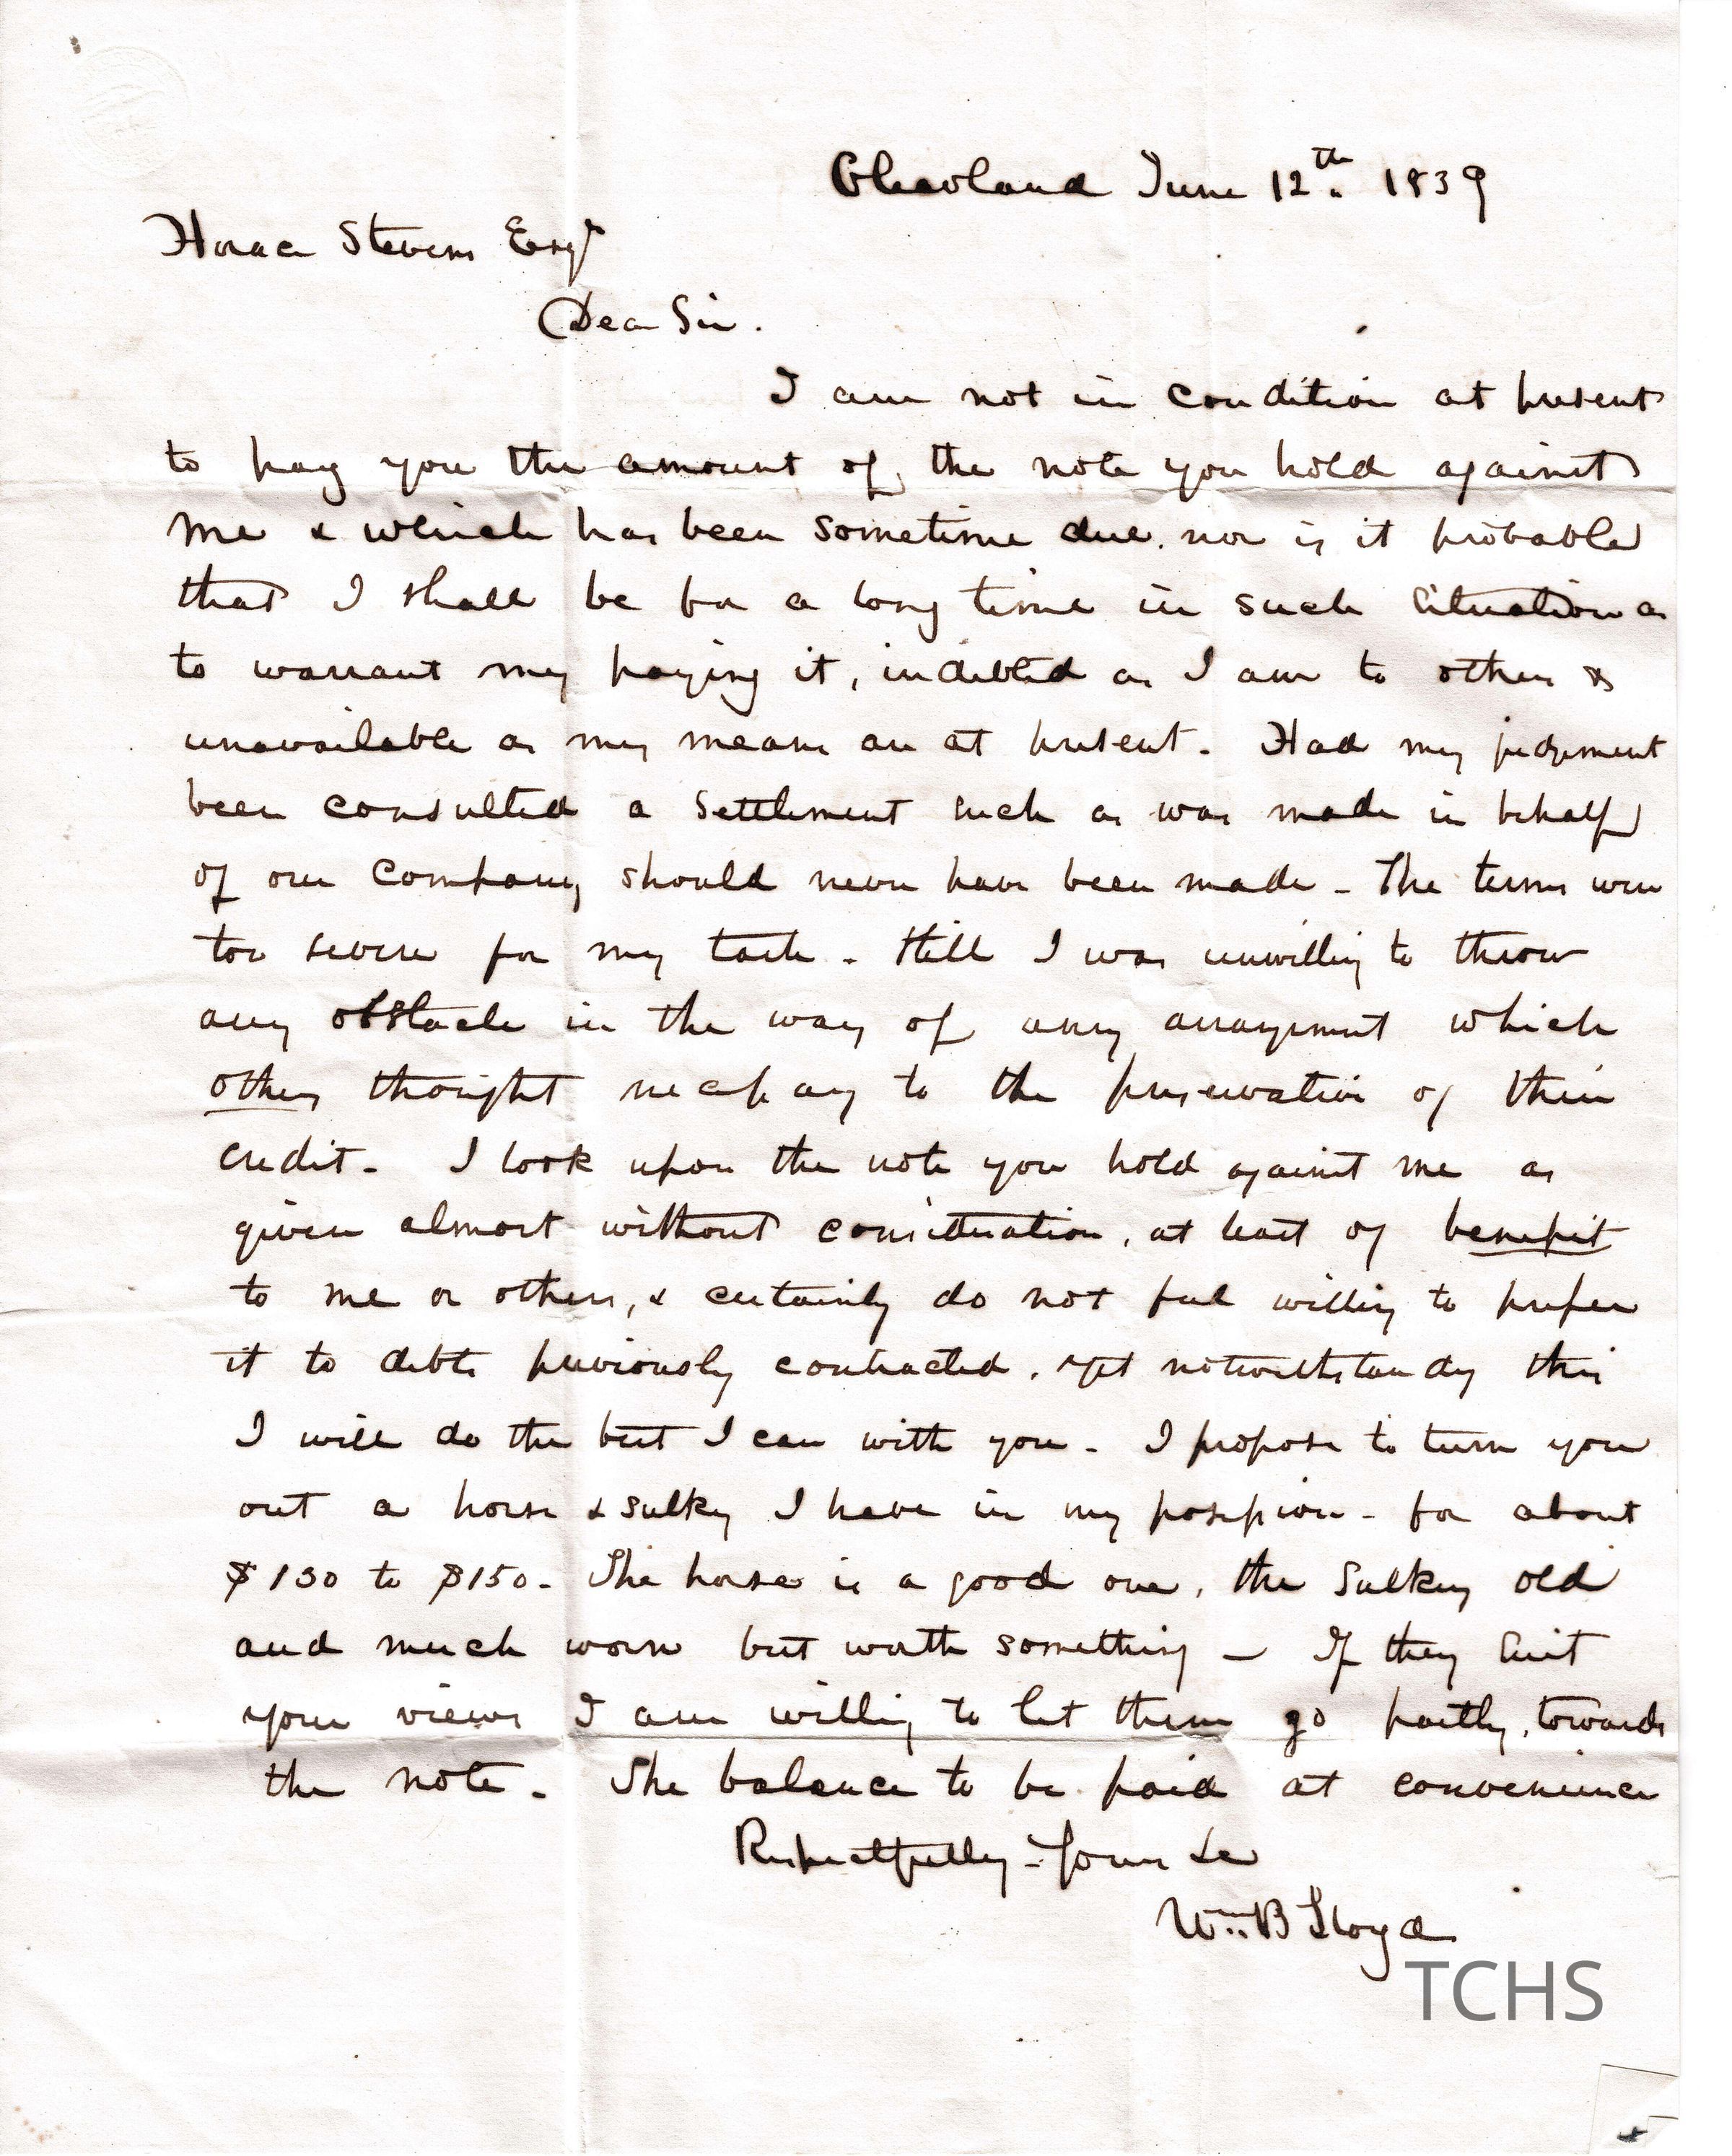 Cleaveland June 12th 1839
Horace Stevens Esqr
Dear Sir.
I am not in condition at present
to pay you the amount of the note you hold against
me & which has been sometime due. nor is it probable
that I shall be for a long time in such situation as
to warrant my paying it, indebted as I am to others &
unavailable as my means are at present. Had my judgement
been consulted a settlement such as was made in behalf
of our company should never have been made - The terms were
too severe for my taste. Still I was unwilling to throw
any obstacle in the way of any arrangement which
others thought necessary to the preservation of their
credit. I look upon the note you hold against me as
given almost without consideration, at least of benefit
to me or others, & certainly do not feel willing to prefer
it to debts previously contracted, yet notwithstanding this
I will do the best I can with you - I propose to turn you
out a horse & sulky I have in my possession - for about
$130 to $150 - The horse is a good one, the sulkey old
and much worn but worth something - If they suit
your views I am willing to let them go partly, towards
the note - The balance to be paid at convenience
Respectfully - Yours &c
Wm B Lloyd
TCHS